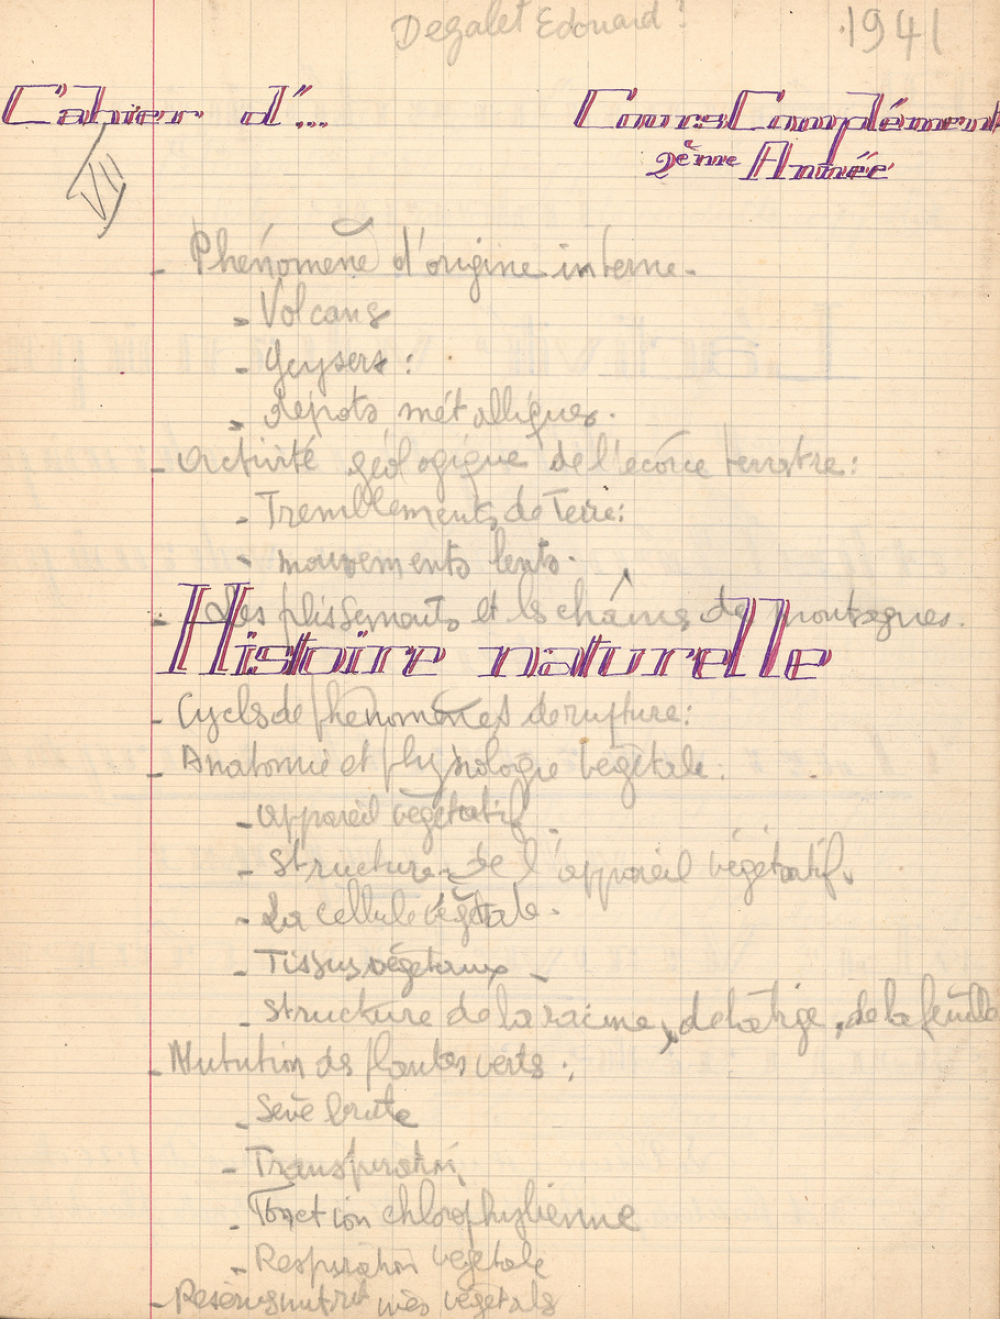 Degalet Edouard 1941
Cahier d'... Cours Complément
2ème Année
VII
- Phénomène d'origine interne -
- Volcans
- Geysers :
- Dépots métalliques.
- Activité géologique de l'écorce terrestre :
- Tremblements de Terre :
- mouvements lents.
- Les plissements et les chaînes de montagnes.
Histoire naturelle
- Cycles de phénomènes de rupture :
- Anatomie et physiologie végétale :
- appareil végétatif.
- Structure de l'appareil végétatif.
- La cellule végétale.
- Tissus végétaux -
- Structure de la racine, de la tige, de la feuille
- Nutrition des plantes verts :
- Seve brute
- Transpiration
- Fonction chlorophylienne
- Respiration végétale
- Réserves nutritives végétals